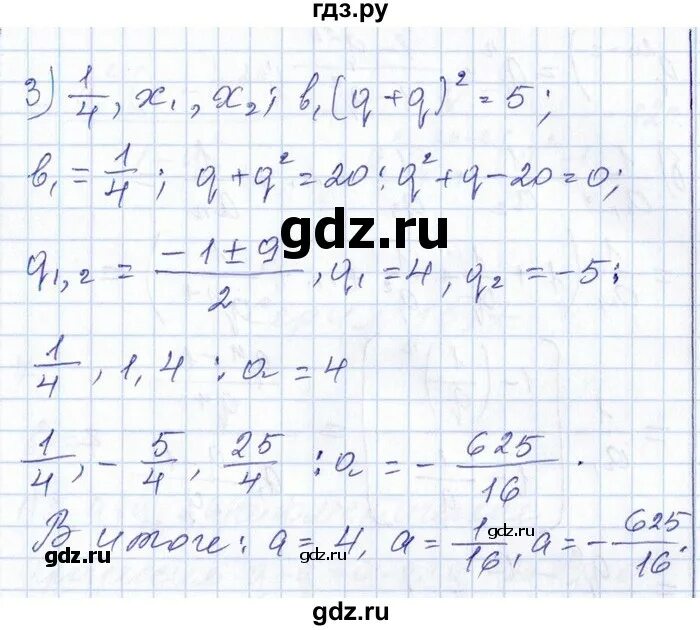 гдз.ру
3) 1/4, x₁, x₂; b₁(q+q)² = 5;
b₁ = 1/4; q+q² = 20: q²+q-20=0;
gdz.ru
q₁,₂ = (-1±9)/2, q₁ = 4, q₂ = -5:
1/4, 1, 4 : a = 4
1/4, -5/4, 25/4 : a = -625/16.
В итоге: a = 4, a = 1/16, a = -625/16.
gdz.ru gdz.ru gdz.ru
gdz.ru